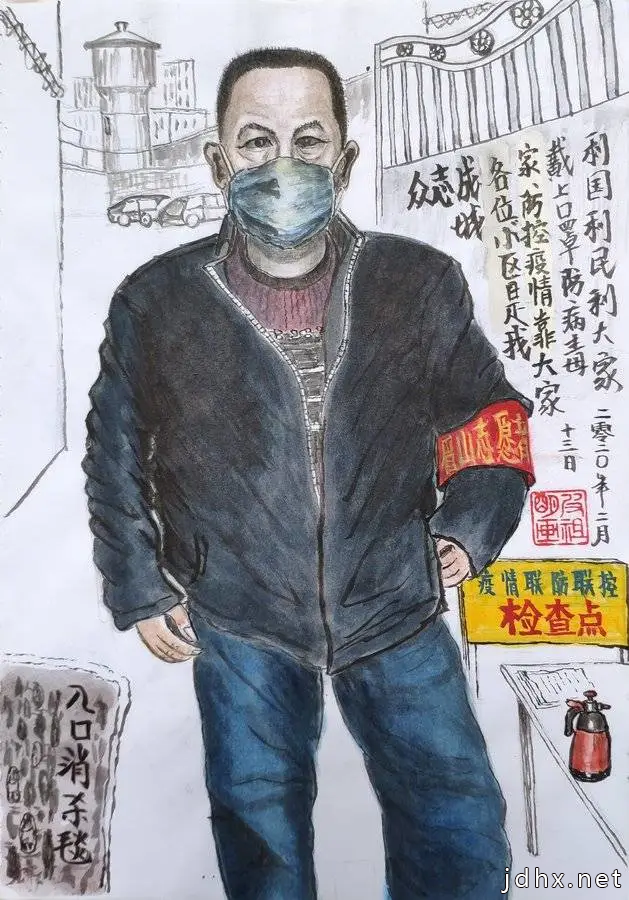 众志
成城
各位小区是我
家、防控疫情靠大家
戴上口罩防病毒
利国利民利大家
二零二0年二月
十三日
眉山志愿者
疫情联防联控
检查点
入口消杀毯
jdhx.net